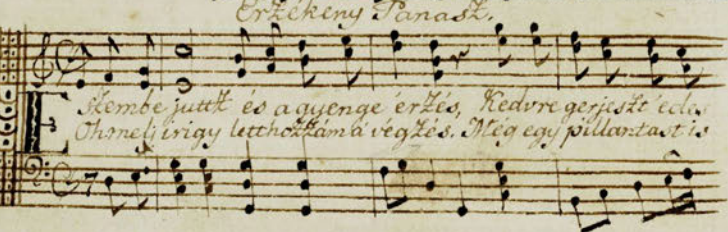 Érzékeny Panasz.
Eszembe juttt és a gyenge érzés, Kedvre gerjeszt édes
Oh melj irigy letthozzám a végzés. Még egy pillantast is